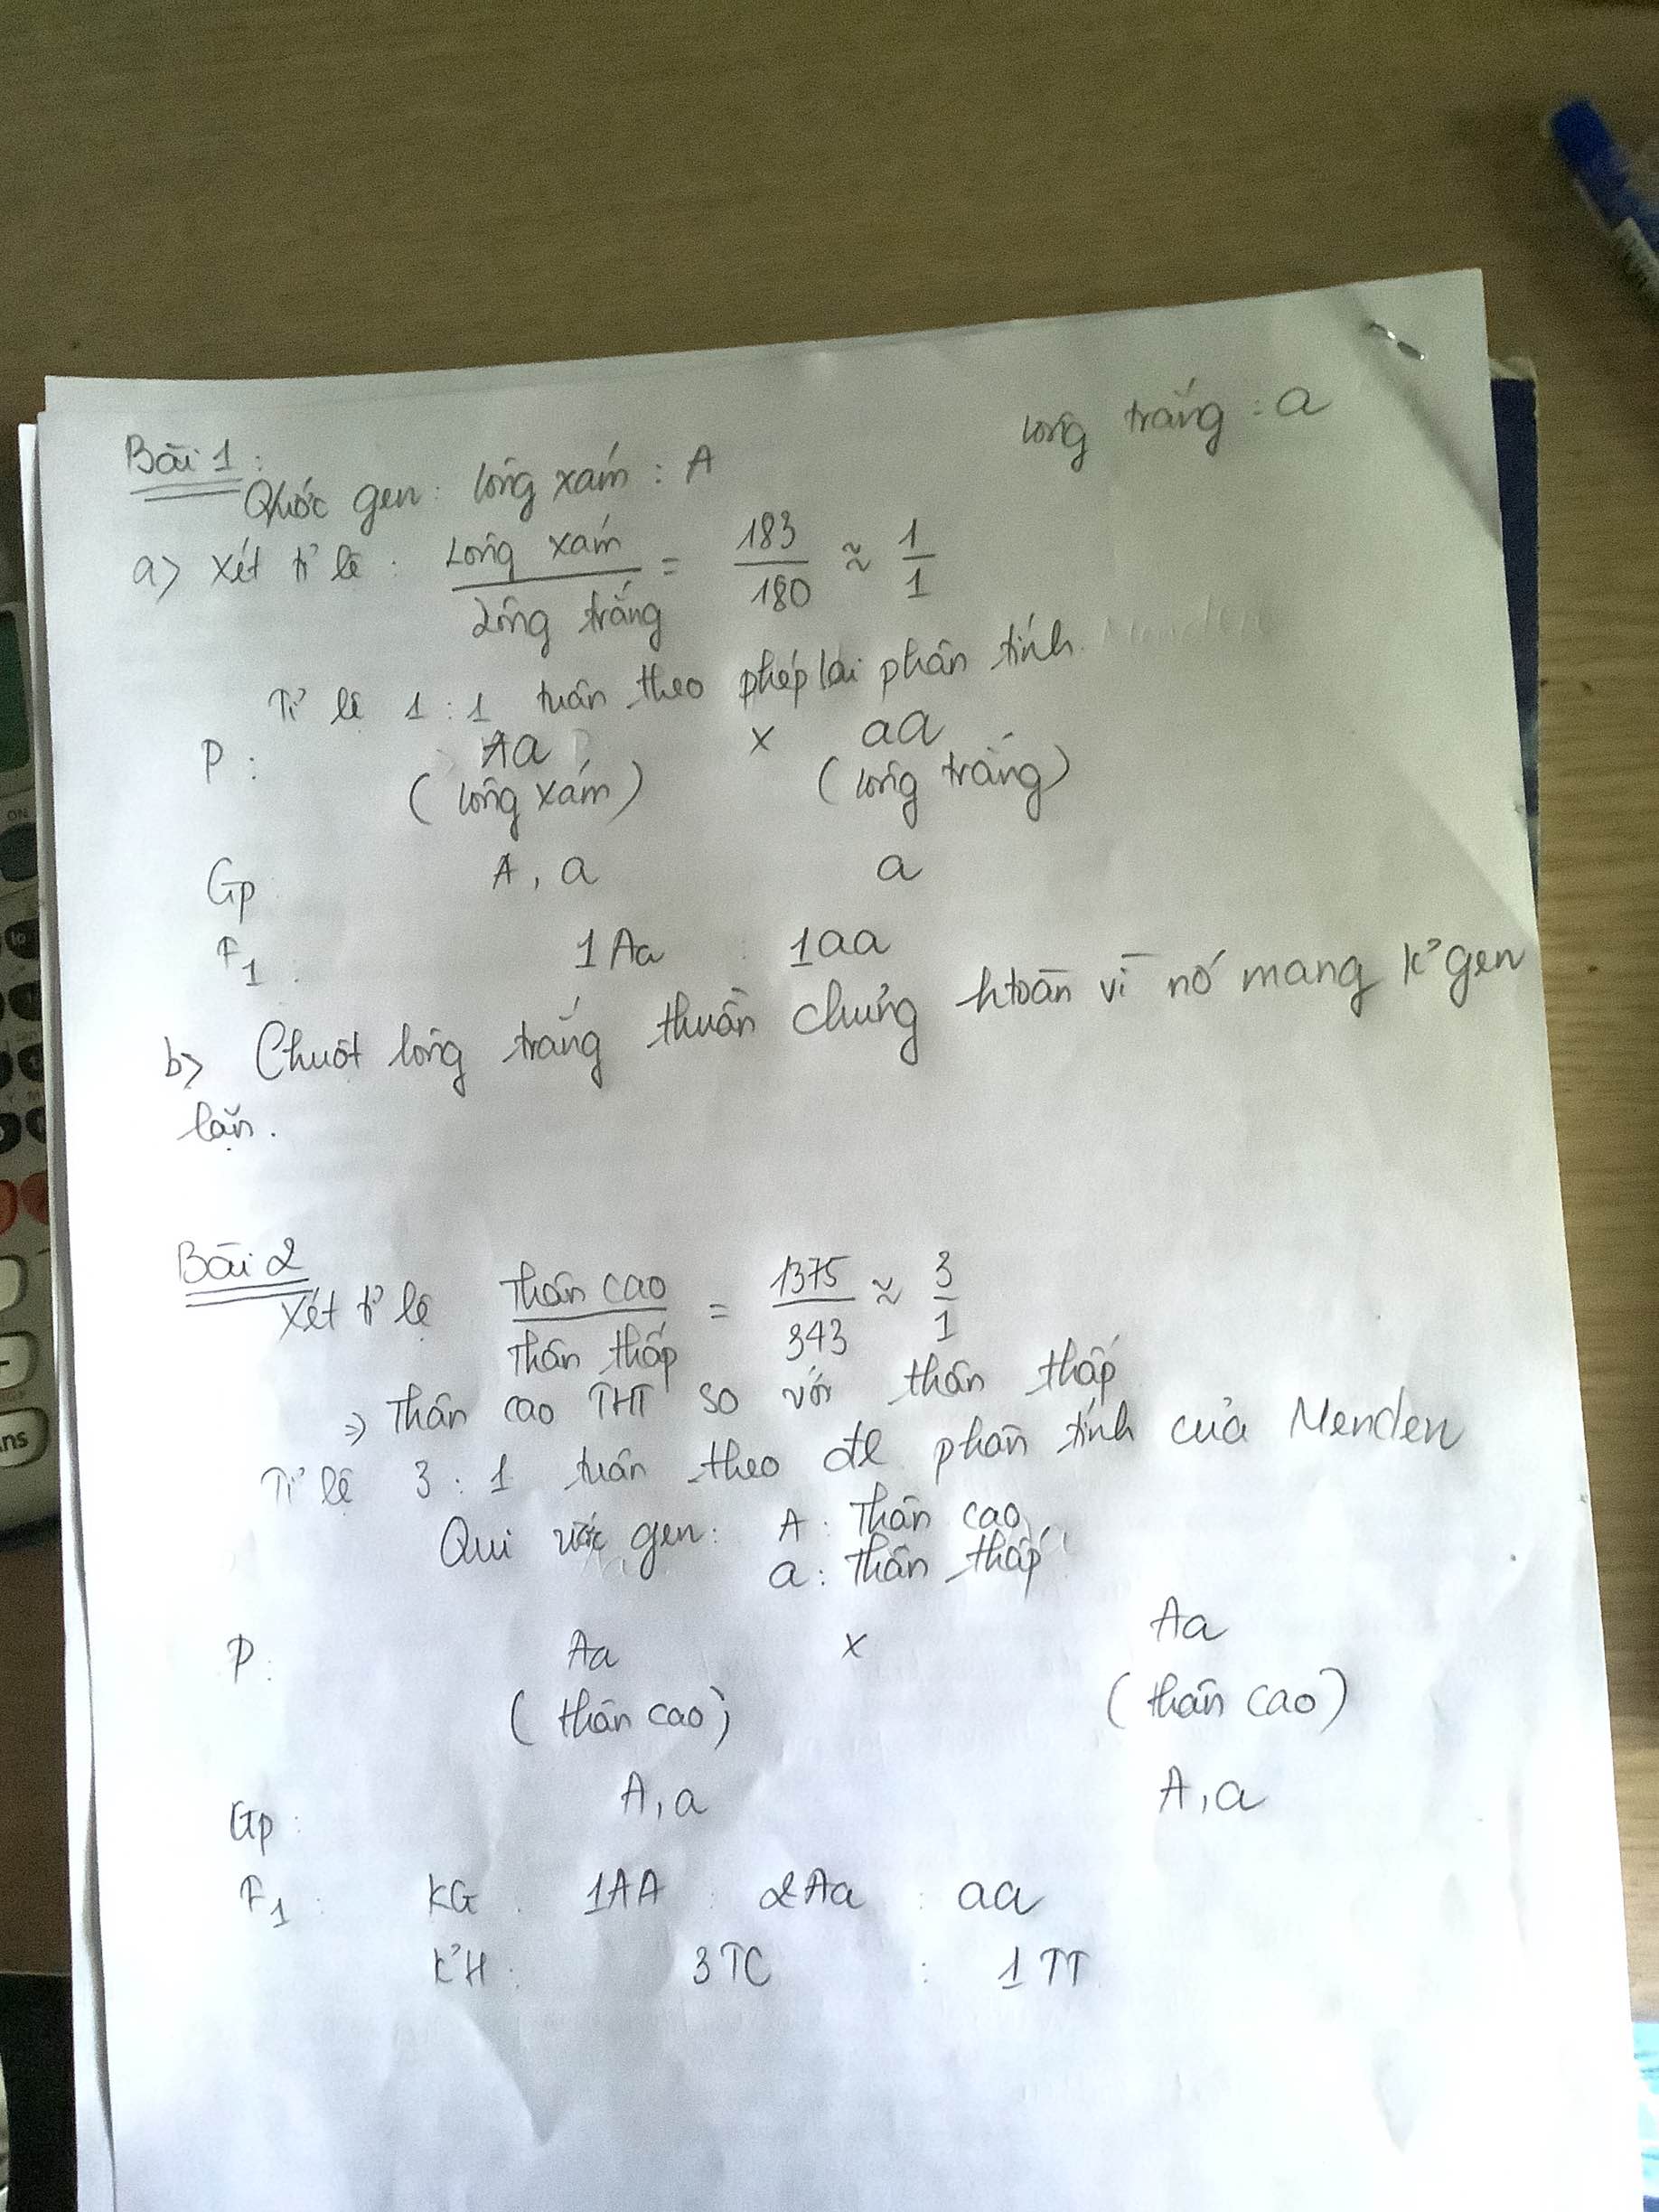 Bài 1:
Qước gen: lông xám : A lông trắng : a
a> Xét tỉ lệ : Lông xám / Lông trắng = 183 / 180 ≈ 1 / 1
Tỉ lệ 1 : 1 tuân theo phép lai phân tính.
P : Aa x aa
( lông xám ) ( lông trắng )
Gp A, a a
F1 : 1 Aa : 1aa
b> Chuột lông trắng thuần chủng htoàn vì nó mang k' gen
lặn.
Bài 2
Xét tỉ lệ Thân cao / Thân thấp = 1375 / 343 ≈ 3 / 1
⇒ Thân cao THT so với thân thấp
Tỉ lệ 3 : 1 tuân theo đl phân tính của Menden
Qui ước gen: A : Thân cao
a : Thân thấp
P : Aa x Aa
( thân cao ) ( thân cao )
Gp : A, a A, a
F1 : KG : 1AA : 2Aa : aa
K'H : 3 TC : 1 TT
ON
ns